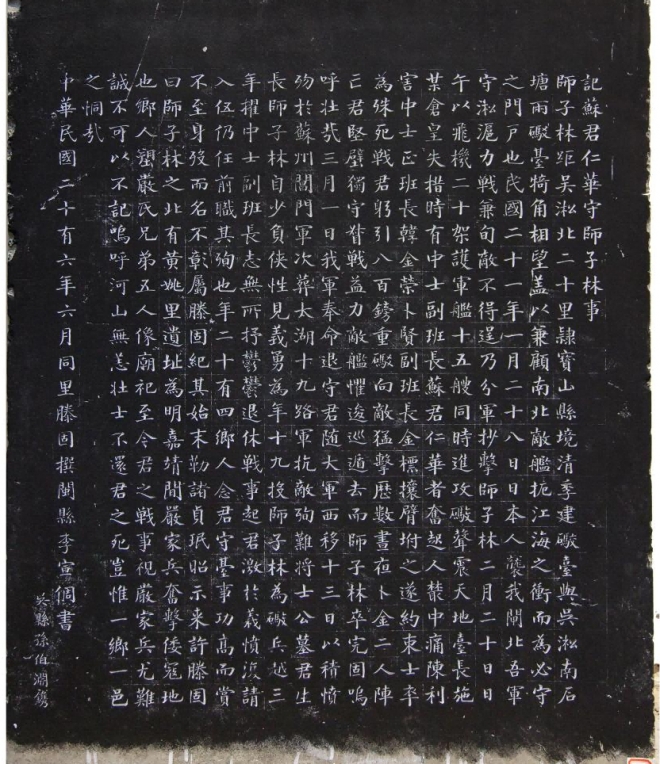 記蘇君仁華守師子林事
師子林距吳淞北二十里隸寶山縣境清季建礮臺與吳淞南石
塘兩礮臺犄角相望蓋以兼顧南北敵艦扼江海之衝而為必守
之門戶也民國二十一年一月二十八日日本人襲我閘北吾軍
守淞滬力戰兼旬敵不得逞乃分軍抄擊師子林二月二十日日
午以飛機二十架護軍艦十五艘同時進攻礮聲震天地臺長施
某倉皇失措時有中士副班長蘇君仁華者奮起人叢中痛陳利
害中士正班長韓金榮卜賢副班長金標攘臂坿之遂約束士卒
為殊死戰君躬引八百鎊重礮向敵猛擊歷數晝夜卜金二人陣
亡君堅壁獨守督戰益力敵艦懼逡巡遁去而師子林卒完固嗚
呼壯哉三月一日我軍奉命退守君隨大軍西移十三日以積憤
殁於蘇州閶門軍次葬太湖十九路軍抗敵殉難將士公墓君生
長師子林自少負俠性見義勇為年十九投師子林為礮兵越三
年擢中士副班長志無所抒鬱鬱退休戰事起君激於義憤復請
入伍仍任前職其殉也年二十有四鄉人念君守臺事功高而賞
不至身歿而名不彰屬滕固紀其始末勒諸貞珉昭示來許滕固
曰師子林之北有黃姚里遺址為明嘉靖間嚴家兵奮擊倭寇地
也鄉人塑嚴氏兄弟五人像廟祀至今君之戰事視嚴家兵尤難
誠不可以不記嗚呼河山無恙壯士不還君之死豈惟一鄉一邑
之恫哉
中華民國二十有六年六月同里滕固撰閩縣李宣倜書
吳縣孫伯淵鐫